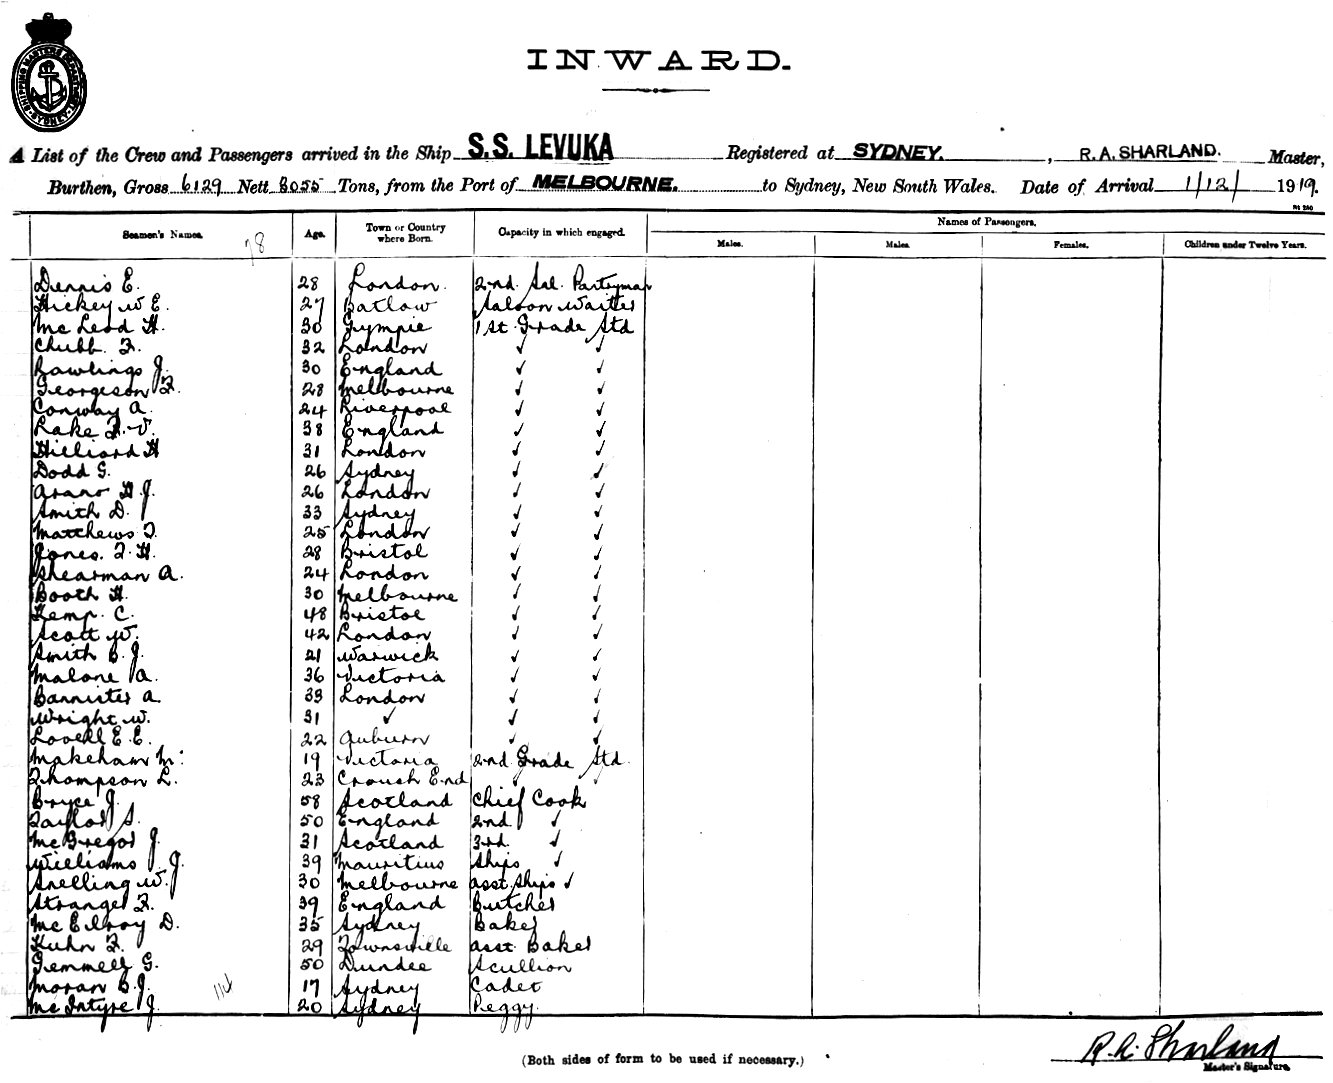 SHIPPING MASTERS DEPARTMENT SYDNEY
INWARD.
A List of the Crew and Passengers arrived in the Ship S.S. LEVUKA Registered at SYDNEY. , R.A. SHARLAND. Master,
Burthen, Gross 6129 Nett 8055 Tons, from the Port of MELBOURNE. to Sydney, New South Wales. Date of Arrival 1/12/ 1919.
Seamen's Names. 78 Age. Town or Country where Born. Capacity in which engaged. Names of Passengers.
Males. Males. Females. Children under Twelve Years.
Dennis E. 28 London. 2nd. Sal. Pantryman
Hickey W E. 27 Batlow Saloon Waiter
McLeod H. 30 Gympie 1st Grade Std
Chubb. F. 32 London ✓ ✓
Rawlings J. 30 England ✓ ✓
Georgeson F. 28 Melbourne ✓ ✓
Conway A. 24 Liverpool ✓ ✓
Lake F. V. 38 England ✓ ✓
Hilliard H 31 London ✓ ✓
Dodd G. 26 Sydney ✓ ✓
H. J. 26 London ✓ ✓
Smith D. 33 Sydney ✓ ✓
Matthews T. 25 London ✓ ✓
Jones. F. H. 28 Bristol ✓ ✓
Shearman A. 24 London ✓ ✓
Booth H. 30 Melbourne ✓ ✓
Kemp. C. 48 Bristol ✓ ✓
Scott W. 42 London ✓ ✓
Smith B. J. 21 Warwick ✓ ✓
Malone A. 36 Victoria ✓ ✓
Bannister A. 33 London ✓ ✓
Wright W. 31 ✓ ✓ ✓
Lovell E. E. 22 Auburn ✓ ✓
Makeham M. 19 Victoria 2nd Grade Std.
Thompson L. 23 Crouch End ✓ ✓
Bryce J. 58 Scotland Chief Cook
Taylor S. 50 England 2nd ✓
McGregor J. 31 Scotland 3rd. ✓
Williams J. 39 Mauritius Ships ✓
Snelling W. 30 Melbourne asst. Ships ✓
Stranger F. 39 England Butcher
McElroy D. 35 Sydney Baker
Kuhn F. 29 Townsville asst. Baker
Gemmell G. 50 Dundee Scullion
Moran B. J. 17 Sydney Cadet
McIntyre J. 20 Sydney Peggy.
(Both sides of form to be used if necessary.)
R. A. Sharland
Master's Signature.